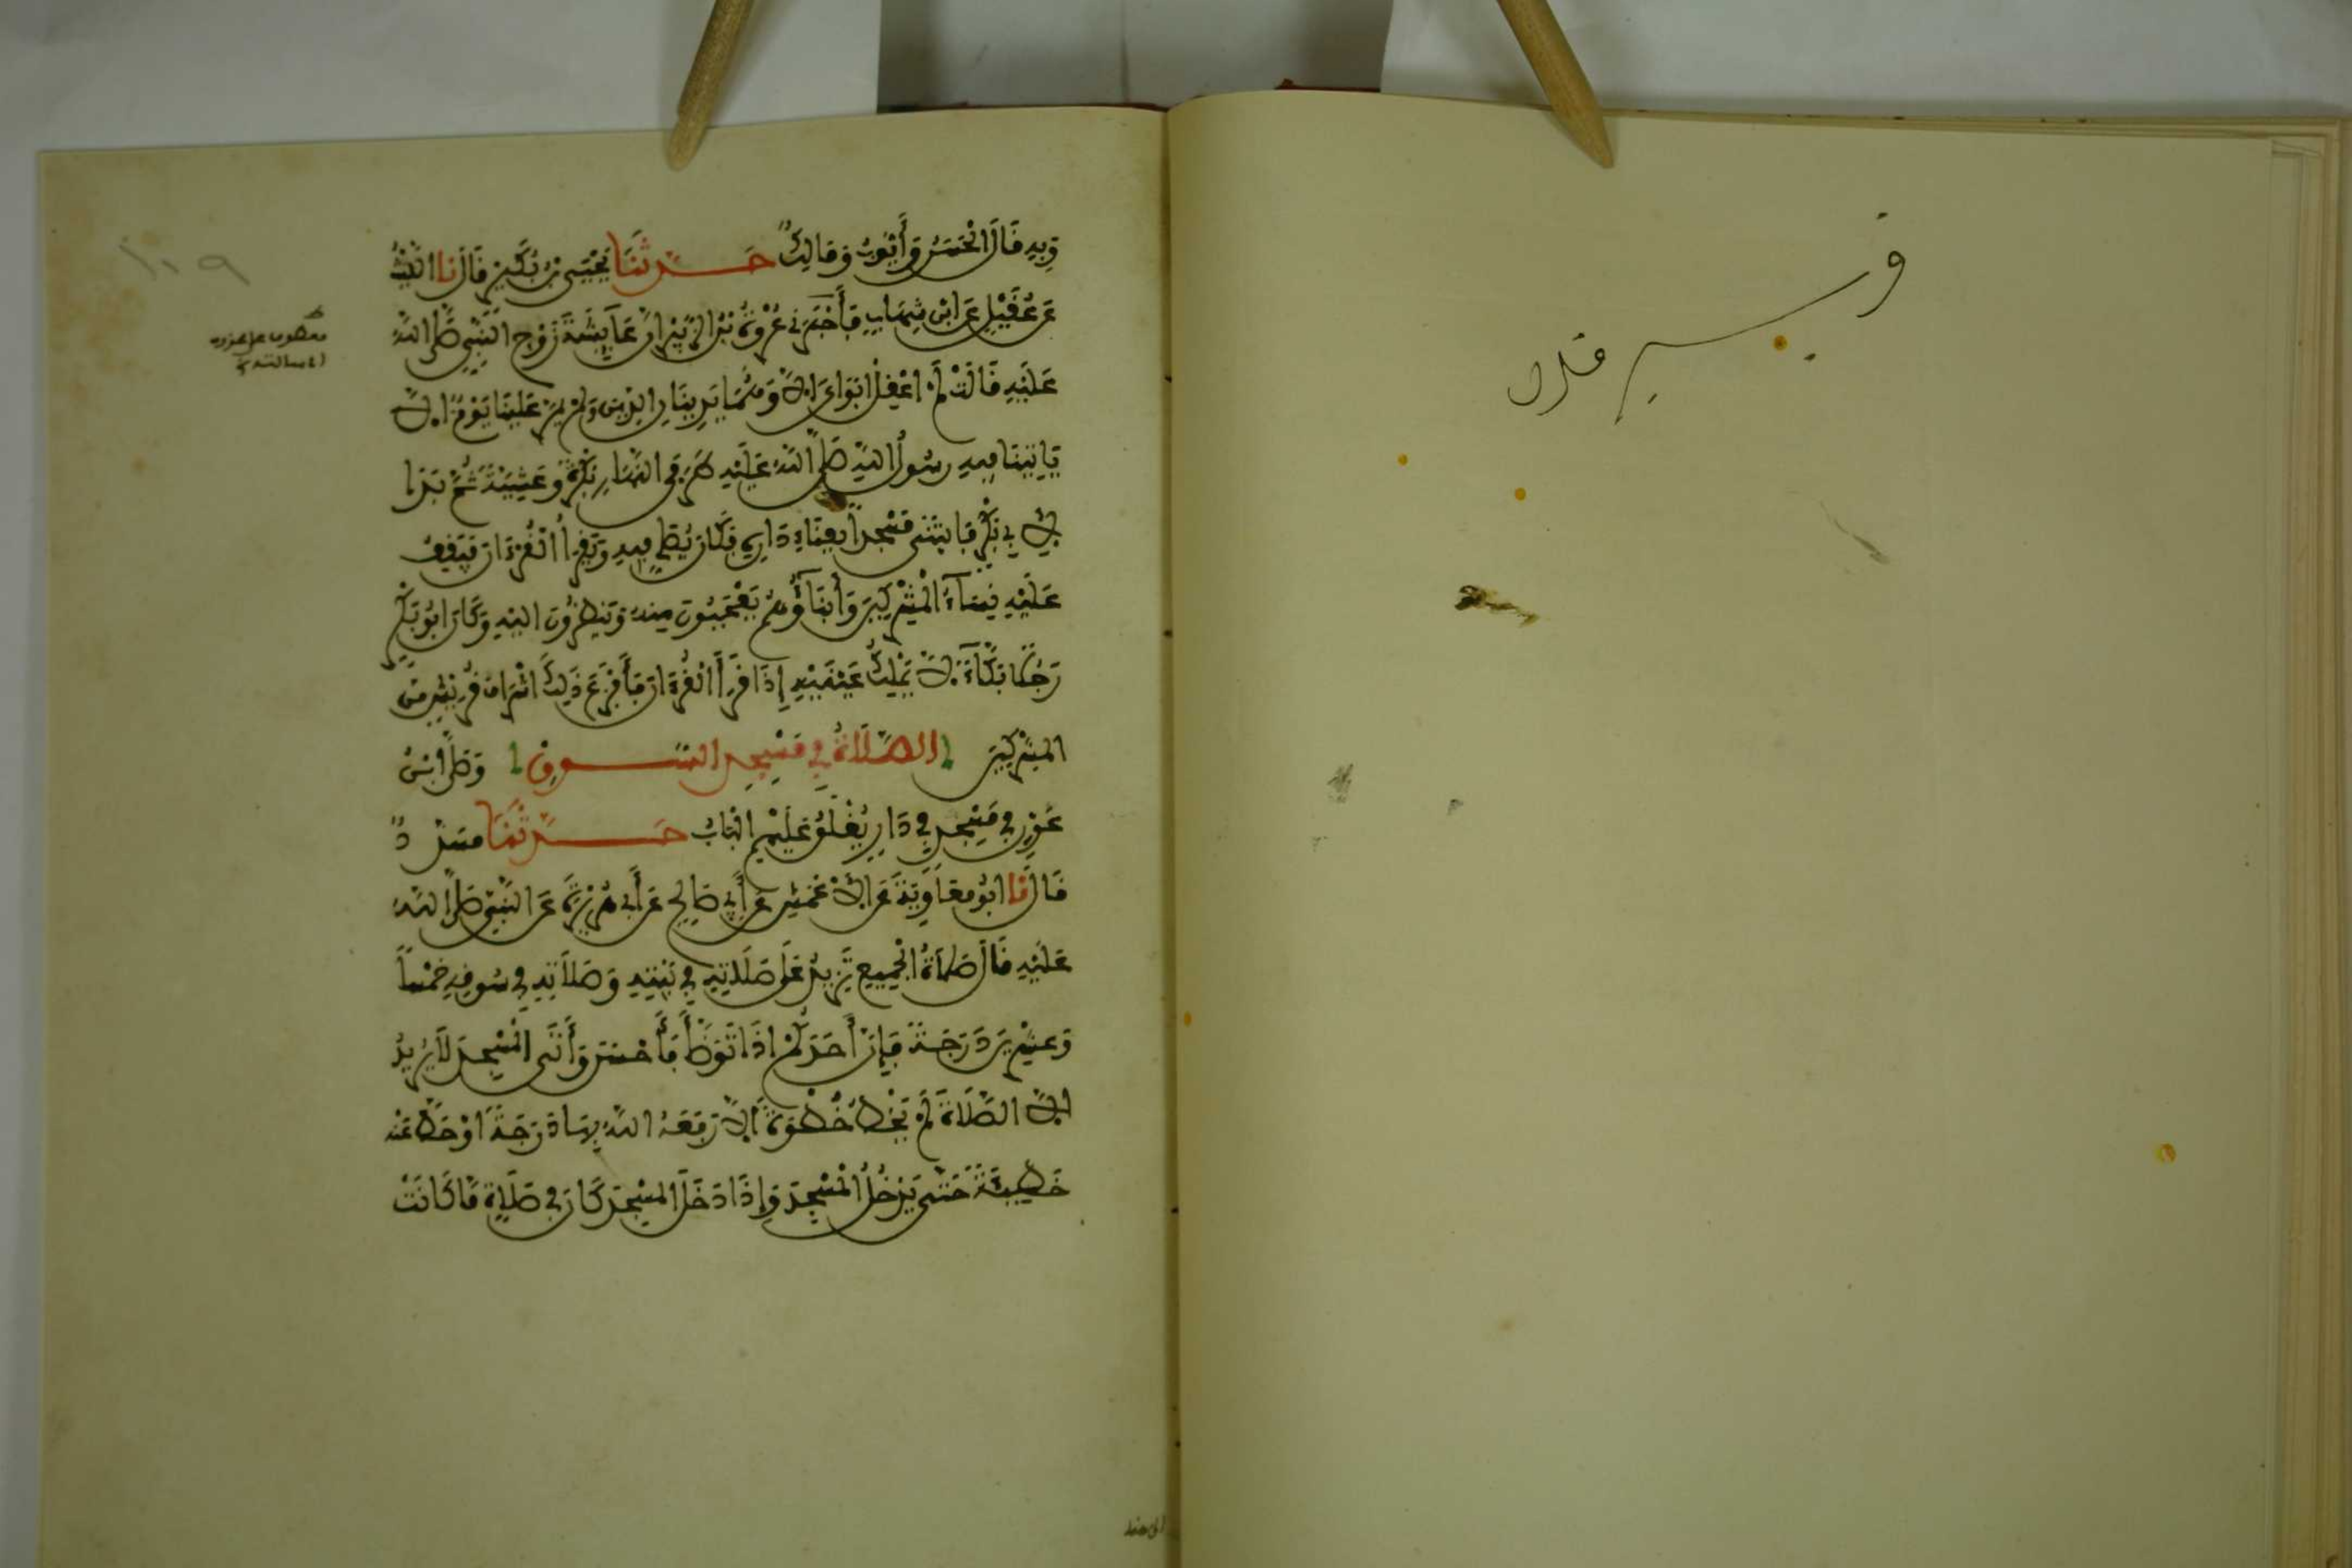 وبه قال الحسن وأيوب ومالك حدثنا يحيى بن بكير قال نا الليث
عن عقيل عن ابن شهاب فأخبرني عروة بن الزبير أن عايشة زوج النبي صلى الله
عليه قالت لم اعقل ابواي الا وهما يدينان الدين ولم يمر علينا يوم الا
ياتينا فيه رسول الله صلى الله عليه طرفي النهار بكرة وعشية ثم بدا
لابي بكر فابتنى مسجدا بفناء داره فكان يصلي فيه ويقرأ القرءان فيقف
عليه نساء المشركين وأبناؤهم يعجبون منه وينظرون اليه وكان ابو بكر
رجلا بكاء لا يملك عينيه إذا قرأ القرءان فأفزع ذلك اشراف قريش من
المشركين الصلاة في مسجد السوق وصلى ابن
عون في مسجد في دار يغلق عليهم الباب حدثنا مسدد
قال نا ابو معاوية عن الاعمش عن أبي صالح عن أبي هريرة عن النبي صلى الله
عليه قال صلاة الجميع تزيد على صلاته في بيته وصلاته في سوقه خمسا
وعشرين درجة فإن أحدكم إذا توضأ فأحسن وأتى المسجد لا يريد
الا الصلاة لم يخط خطوة الا رفعه الله بها درجة او حط عنه
خطيئة حتى يدخل المسجد وإذا دخل المسجد كان في صلاة ما كانت
١٠٩